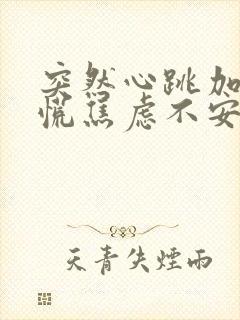 突然心跳加
慌焦虑不安
天青失煙雨